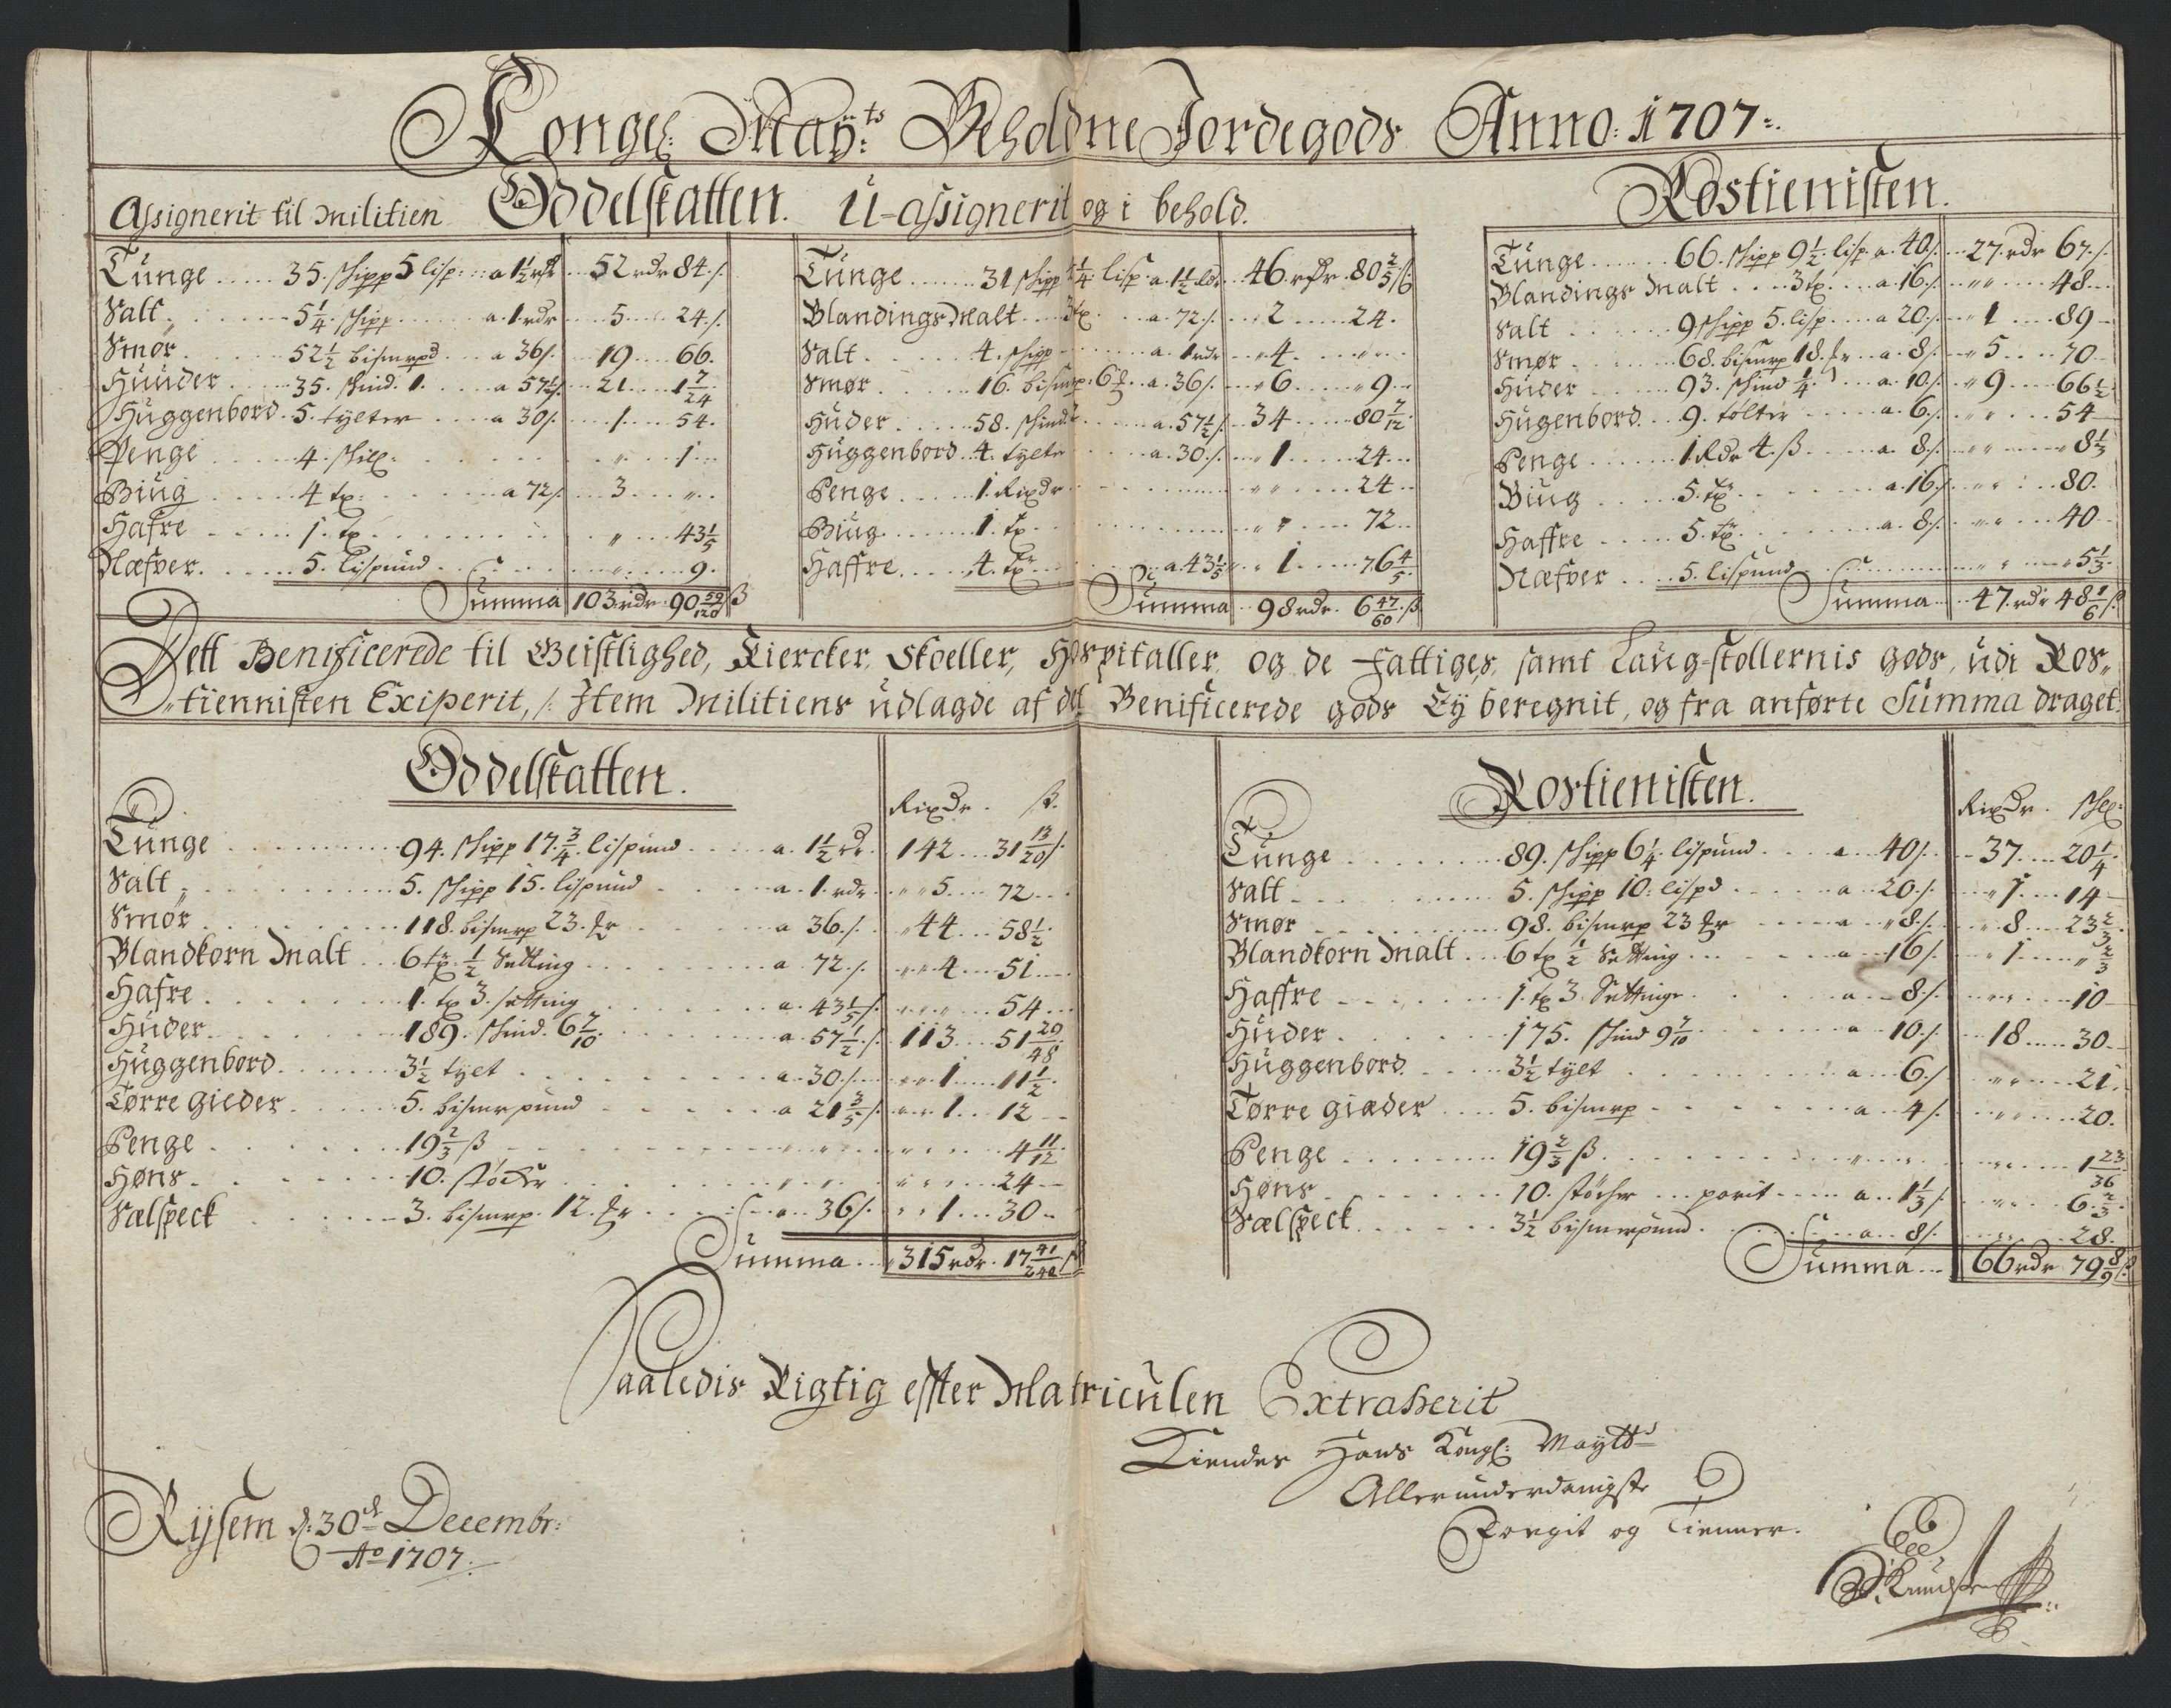 Kongl: Maÿ:ts Beholdne Jordegods Anno: 1707:.
Assignerit til Militien Oddelskatten. U-assignerit og i behold.
Rostienisten.
Tunge 35. skipp 5 lisp: a 1½ rdr 52 rdr 84 s.
Salt 5¼. skipp a. 1. rdr 5 24 s.
Smør 52½ bismrpd a 36 s. 19 66.
Huuder 35. skind. 1. a 57½ s. 21 1 7/24
Huggenbord. 5. tylter a 30 s. 1 54.
Penge 4. skill: " 1
Biug 4 tp: a 72 s. 3 "
Hafre 1. tp " 43 1/5
Næfver. 5. lispund " 9.
Summa 103 rdr. 90 59/120 ß
Tunge 31 skipp ¼ lisp a. 1½ rdr 46. rdr. 80 2/5 ß
Blandings Malt 3 tp. a. 72 s. 2 24.
Salt 4. skipp a. 1 rdr 4. "
Smør 16. bismrp: a. 36 s. 6 9
Huder 58. skind a. 57½ s. 34 80 7/12
Huggenbord 4. tylte a. 30 s. 1 24
Penge 1. Rixdr " 24
Biug 1. tp " 72
Haffre 4. tp a 43 1/5 1 76 4/5.
Summa 98 rdr. 6 47/60 ß
Tunge 66. skipp 9½. lisp. a. 40 s. 27. rdr 67 s.
Blandings Malt 3 tp. a. 16 s. " 48
Salt 9 skipp 5. lisp. a 20 s. 1 89
Smør 68. bismrp 18. a. 8 s. 5 70
Huder 93. skind ¼. a. 10 s. 9 66½
Hugenbord. 9. tolter a. 6 s. " 54
Penge 1 Rdr 4. ß a. 8 s. " 8 1/3
Biug 5. tp a. 16 s. " 80.
Haffre 5. tp a. 8 s. " 40
Næfver 5. lispund " 5 1/3.
Summa 47. rdr 48 1/6 ß
Dett Benificerede til Geistlighed, Kiercker, Skoeller, Hospitaller, og de Fattiges, samt Laug-stollernis gods, udi Ros„
„tiennisten Exiperit, /: Item Militiens udlagde af det Benificerede gods Ey beregnit, og fra anførte Summa draget:
Oddelskatten.
Rixdr. ß.
Tunge 94. skipp 17.¾. lispund a. 1½ rdr. 142 31 13/20 s.
Salt 5. skipp 15. lispund a. 1. rdr 5 72
Smør 118. bismrp 23. a 36 s. 44 58½.
Blandkorn Malt 6 tp. ½ Setting a. 72 s. 4 51
Hafre 1. tp 3. setting a. 43 1/5 s. " 54
Huder 189. skind. 6 7/10. a. 57½ s. 113 51 29/48.
Huggenbord 3½ tylt a. 30 s. 1 11½.
Tørre gieder 5. bismrpund a 21 3/5 s. 1 12
Penge 19 2/3 ß " 4 11/12.
Høns 10. støcker " 24
Sælspeck 3. bismrp. 12. a. 36 s. 1 30
Summa 315 rdr. 17 41/240 ß
Rostienisten.
Rixdr. skl:
Tunge 89. skipp 6¼. lispund a. 40 s. 37 20¼.
Salt 5. skipp 10: lispd a. 20 s. 1 14
Smør 98. bismrp 23 a 8 s. 8 23 2/3.
Blandkorn Malt 6 tp ½ Setting a 16 s. 1 " 2/3
Haffre 1. tp 3. Settinge a 8 s. " 10
Huder 175. skind 9 7/10 a 10 s. 18 30
Huggenbord 3½ tylt a 6 s. " 21.
Tørre giæder 5. bismrp a 4 s. " 20.
Penge 19 2/3 ß " 1 23/36
Høns 10. støcher a. 1 1/3 s. " 6 2/3.
Sælspeck 3½ bismrpund. a 8 s. " 28.
Summa 66 rdr 79 8/9 ß.
Saaledis Rigtig effter Matriculen Extraherit
Hans Kongl: Maÿtts
Allerunderdanigste
og Tienner.
Rÿsem d: 30te Decembr:
Ao 1707.